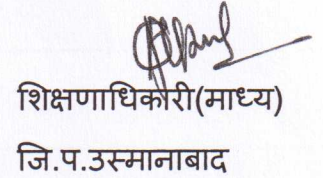 शिक्षणाधिकारी(माध्य)
जि.प.उस्मानाबाद